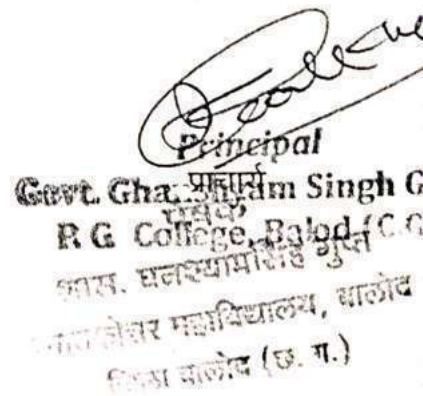 Principal
प्राचार्य
Govt. Gha. Shyam Singh G
P. G. College, Balod (C.G
शास. घनश्यामसिंह गुप्त
महाविद्यालय, बालोद
जिला बालोद (छ. ग.)